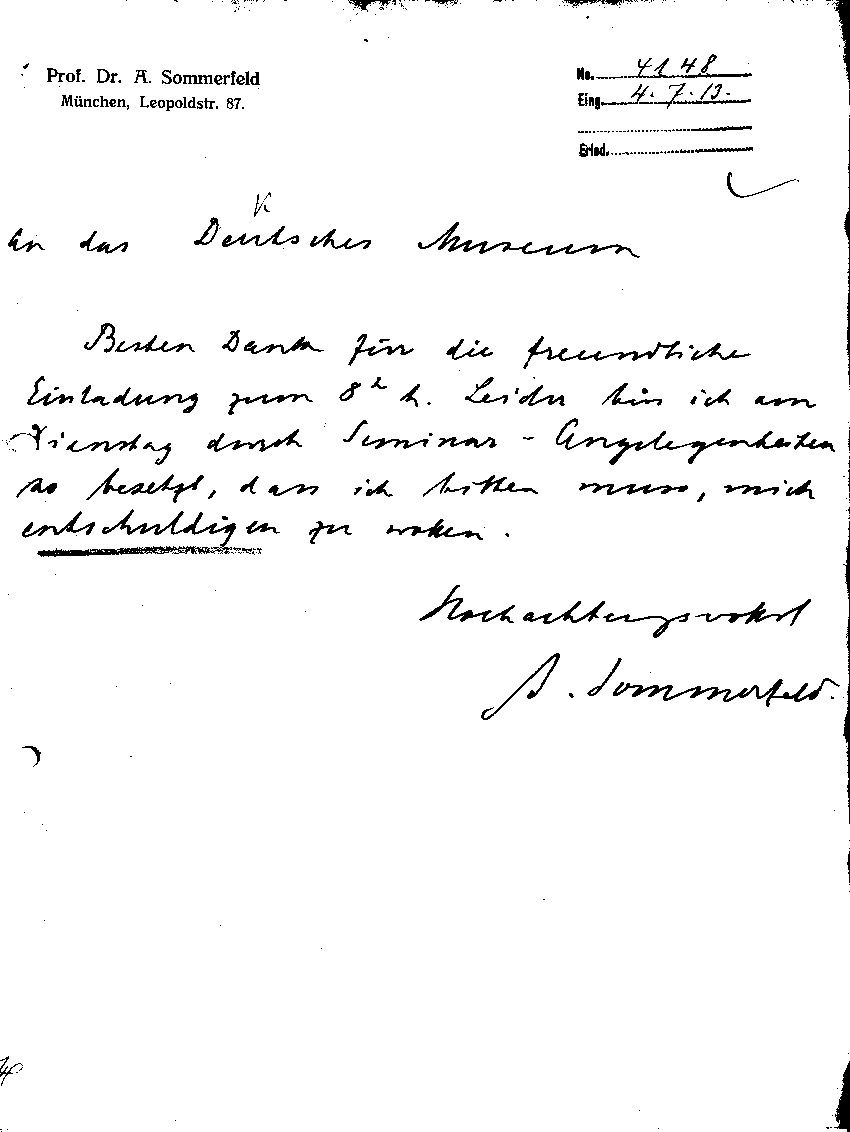 Prof. Dr. A. Sommerfeld
München, Leopoldstr. 87.
No. 4148
Eing. 4.7.13.
Erled.
K
An das Deutsches Museum
Besten Dank für die freundliche
Einladung zum 8ᵗ h. Leider bin ich am
Dienstag durch Seminar-Angelegenheiten
so besetzt, dass ich bitten muss, mich
entschuldigen zu wollen.
Hochachtungsvollst
A. Sommerfeld.